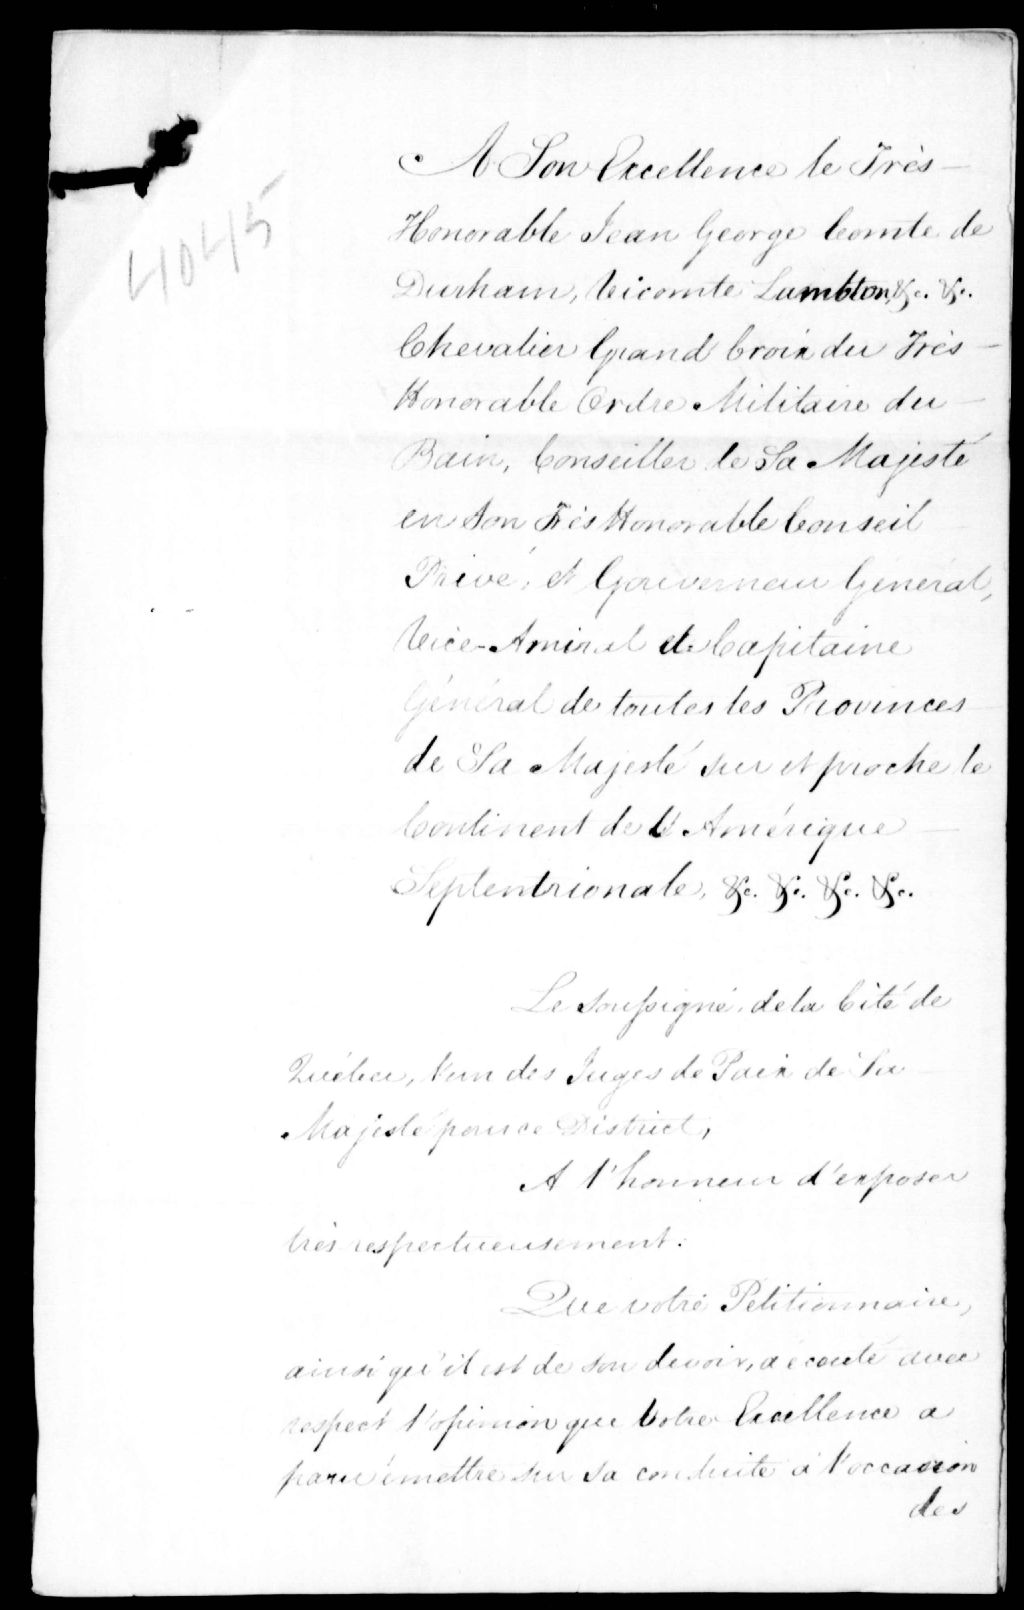 4045
A Son Excellence le Très-
Honorable Jean George Comte de
Durham, Vicomte Lambton, &c. &c.
Chevalier Grand Croix du Très-
Honorable Ordre Militaire du
Bain, Conseiller de Sa Majesté
en Son Très Honorable Conseil
Privé, et Gouverneur Général,
Vice-Amiral et Capitaine
Général de toutes les Provinces
de Sa Majesté sur et proche le
Continent de l'Amérique
Septentrionale, &c. &c. &c. &c.
Le Soussigné, de la Cité de
Québec, l'un des Juges de Paix de Sa
Majesté pour ce District,
A l'honneur d'exposer
très respectueusement:
Que votre Petitionnaire,
ainsi qu'il est de son devoir, a écouté avec
respect l'opinion que Votre Excellence a
paru émettre sur sa conduite à l'occasion
des